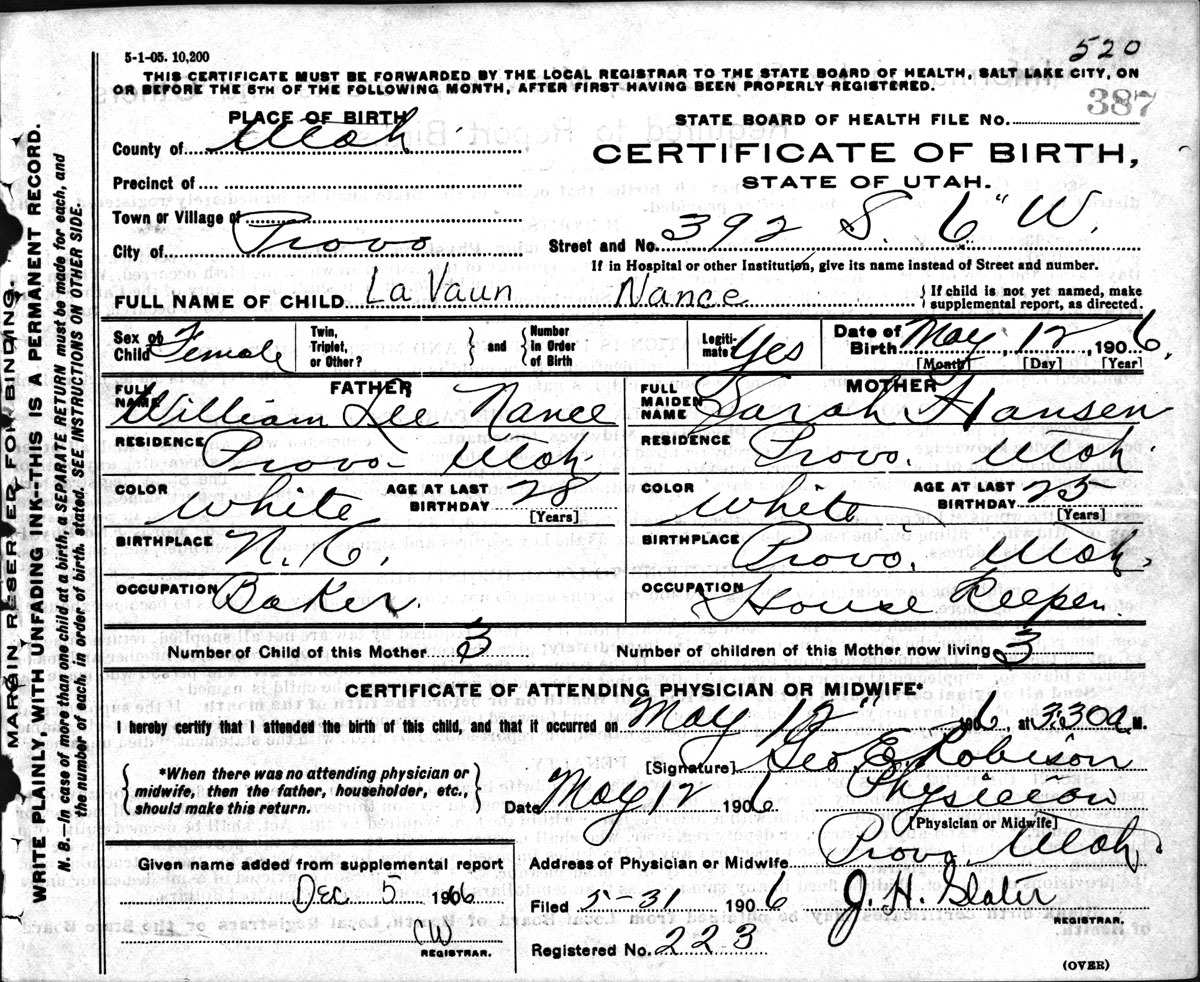 5-1-05. 10,200
520
THIS CERTIFICATE MUST BE FORWARDED BY THE LOCAL REGISTRAR TO THE STATE BOARD OF HEALTH, SALT LAKE CITY, ON
OR BEFORE THE 5TH OF THE FOLLOWING MONTH, AFTER FIRST HAVING BEEN PROPERLY REGISTERED.
387
PLACE OF BIRTH
STATE BOARD OF HEALTH FILE NO.
County of Utah
CERTIFICATE OF BIRTH,
Precinct of
STATE OF UTAH.
Town or Village of
City of Provo
Street and No. 392 S. 6" W.
If in Hospital or other Institution, give its name instead of Street and number.
FULL NAME OF CHILD La Vaun Nance { If child is not yet named, make
supplemental report, as directed.
Sex of Child Female Twin, Triplet, or Other? } and { Number in Order of Birth Legiti-mate Yes Date of Birth May 12, 1906
[Month] [Day] [Year]
FATHER
FULL NAME William Lee Nance
RESIDENCE Provo Utah
COLOR White AGE AT LAST BIRTHDAY 28 [Years]
BIRTHPLACE N.C.
OCCUPATION Baker.
MOTHER
FULL MAIDEN NAME Sarah Hansen
RESIDENCE Provo. Utah.
COLOR White AGE AT LAST BIRTHDAY 25 [Years]
BIRTHPLACE Provo, Utah.
OCCUPATION House Keeper
Number of Child of this Mother 3 Number of children of this Mother now living 3
CERTIFICATE OF ATTENDING PHYSICIAN OR MIDWIFE*
I hereby certify that I attended the birth of this child, and that it occurred on May 12" 1906, at 3.30 a M.
*When there was no attending physician or
midwife, then the father, householder, etc.,
should make this return.
[Signature] Geo E. Robison
Date May 12 1906 Physician
[Physician or Midwife]
Address of Physician or Midwife Provo Utah.
Given name added from supplemental report
Dec 5 1966
CW
REGISTRAR.
Filed 5-31 1906 J. H. Slater
REGISTRAR.
Registered No. 223
(OVER)
MARGIN RESERVED FOR BINDING.
WRITE PLAINLY WITH UNFADING INK--THIS IS A PERMANENT RECORD.
N. B.—In case of more than one child at a birth, a SEPARATE RETURN must be made for each, and
the number of each, in order of birth, stated. SEE INSTRUCTIONS ON OTHER SIDE.